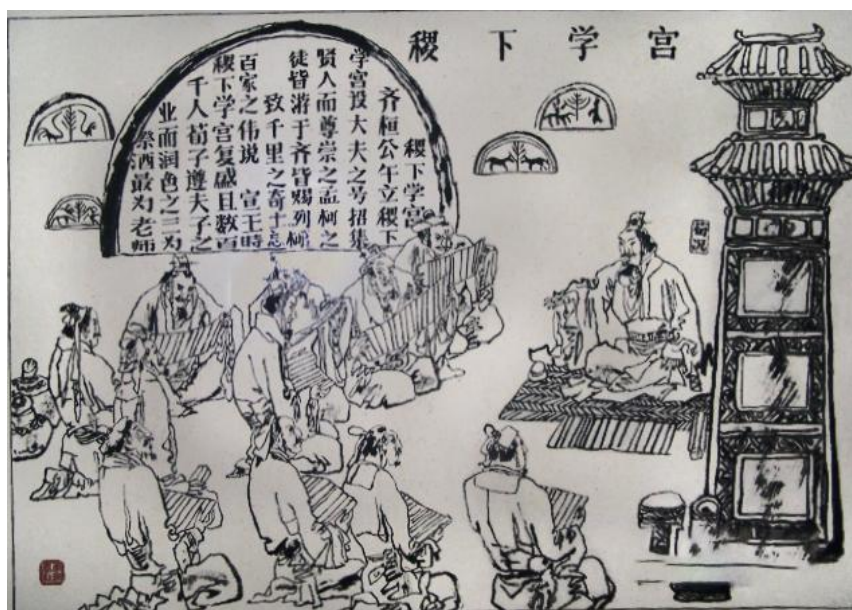 稷下学宫
稷下学宫
齐桓公午立稷下
学宫设大夫之号招集
贤人而尊崇之孟柯之
徒皆游于齐皆赐列
致千里之奇士总
百家之伟说 宣王時
稷下学宫复盛且数百
千人荀子遵夫子之
业而润色之三为
祭酒最为老师
荀况